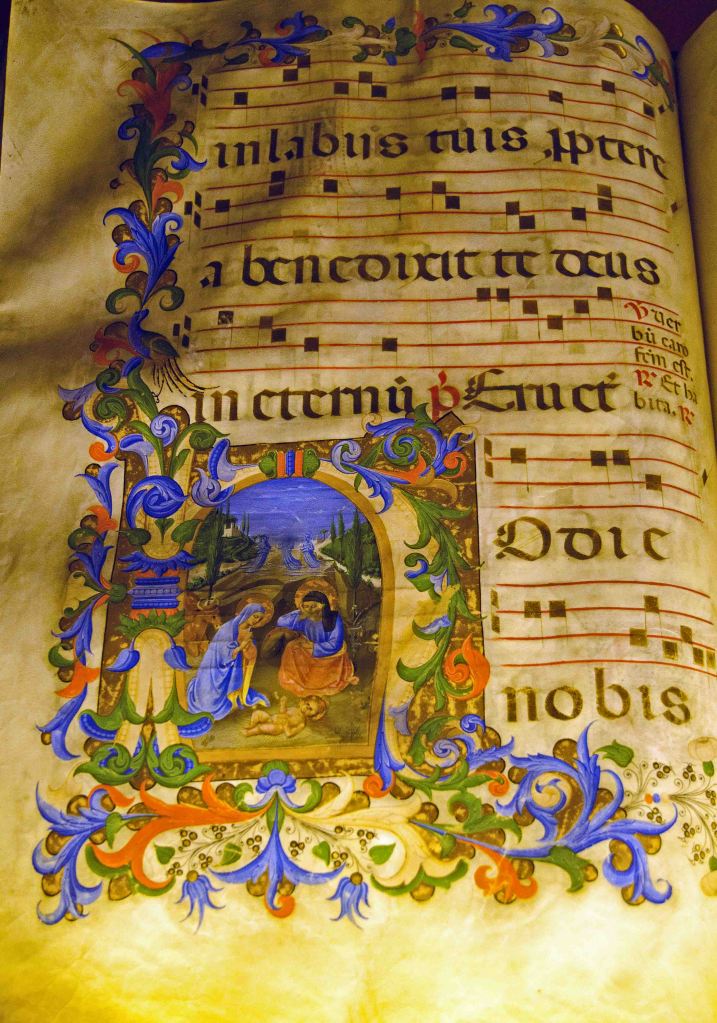 in labijs tuis ꝓptere
a benedixit te deus
in eternū p̄ Eruct̄
V̄ uer
bū caro
fcm est.
R Et ha
bita. R
Hodie
nobis